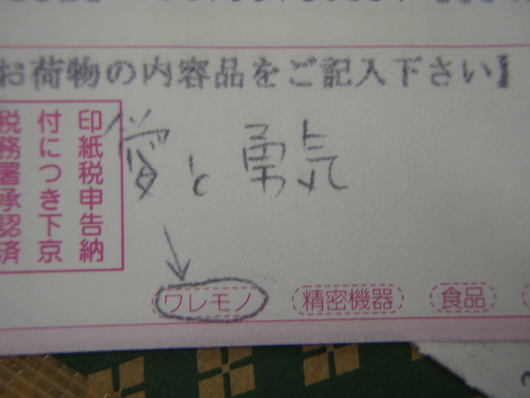 お荷物の内容品をご記入下さい】
印紙税申告納
付につき下京
税務署承認済
愛と勇気
ワレモノ 精密機器 食品